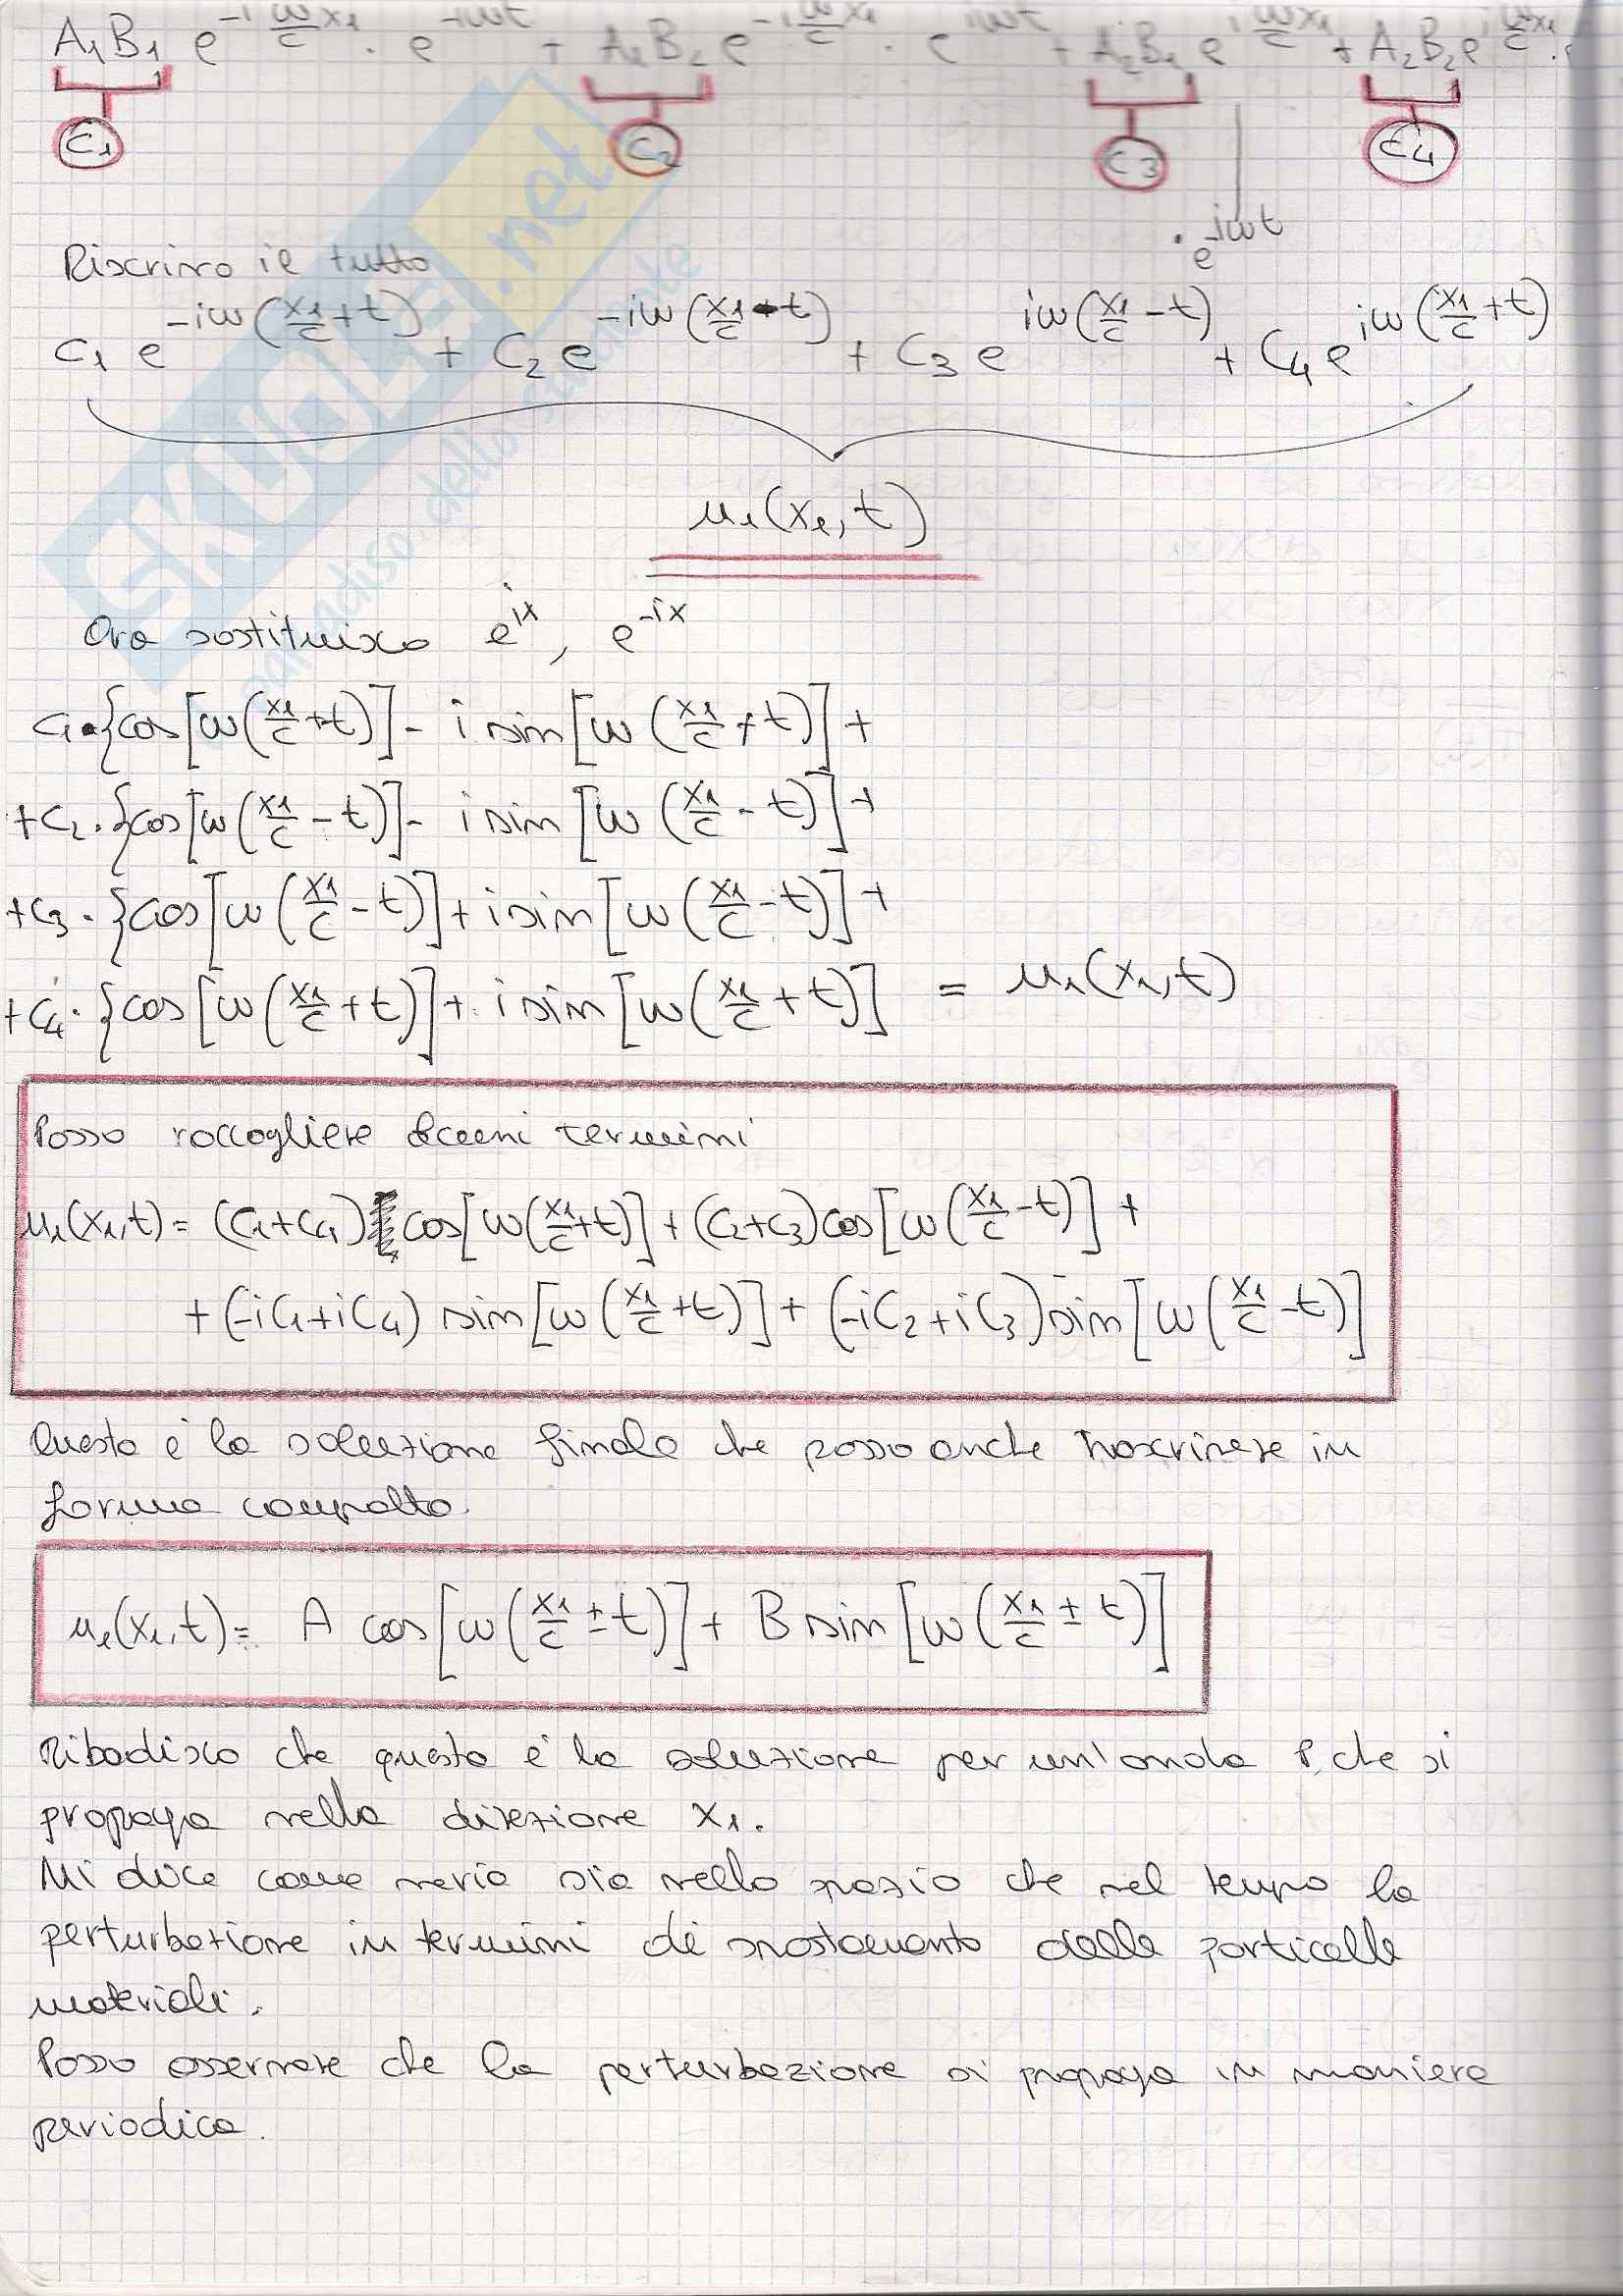 A₁B₁ e^{-i ω/c x₁} · e^{-iωt} + A₁B₂ e^{-i ω/c x₁} · e^{iωt} + A₂B₁ e^{i ω/c x₁} + A₂B₂ e^{i ω/c x₁} ·
C₁ C₂ C₃ C₄
· e^{-iωt}
Riscrivo il tutto
C₁ e^{-iω(x₁/c + t)} + C₂ e^{-iω(x₁/c - t)} + C₃ e^{iω(x₁/c - t)} + C₄ e^{iω(x₁/c + t)}
u₁(x₁, t)
Ora sostituisco e^{ix}, e^{-ix}
C₁·{cos[ω(x₁/c + t)] - i sin[ω(x₁/c + t)] +
+C₂·{cos[ω(x₁/c - t)] - i sin[ω(x₁/c - t)] +
+C₃·{cos[ω(x₁/c - t)] + i sin[ω(x₁/c - t)] +
+C₄·{cos[ω(x₁/c + t)] + i sin[ω(x₁/c + t)] = u₁(x₁, t)
Posso raccogliere alcuni termini
u₁(x₁, t) = (C₁+C₄) cos[ω(x₁/c + t)] + (C₂+C₃) cos[ω(x₁/c - t)] +
+ (-iC₁+iC₄) sin[ω(x₁/c + t)] + (-iC₂+iC₃) sin[ω(x₁/c - t)]
Questa è la soluzione finale che posso anche trascrivere in
forma compatta.
u₁(x₁, t) = A cos[ω(x₁/c ± t)] + B sin[ω(x₁/c ± t)]
Ribadisco che questa è la soluzione per un'onda P, che si
propaga nella direzione x₁.
Mi dice come varia sia nello spazio che nel tempo la
perturbazione in termini di spostamento delle particelle
materiali.
Posso osservare che la perturbazione si propaga in maniera
periodica.
SKUOLA.net